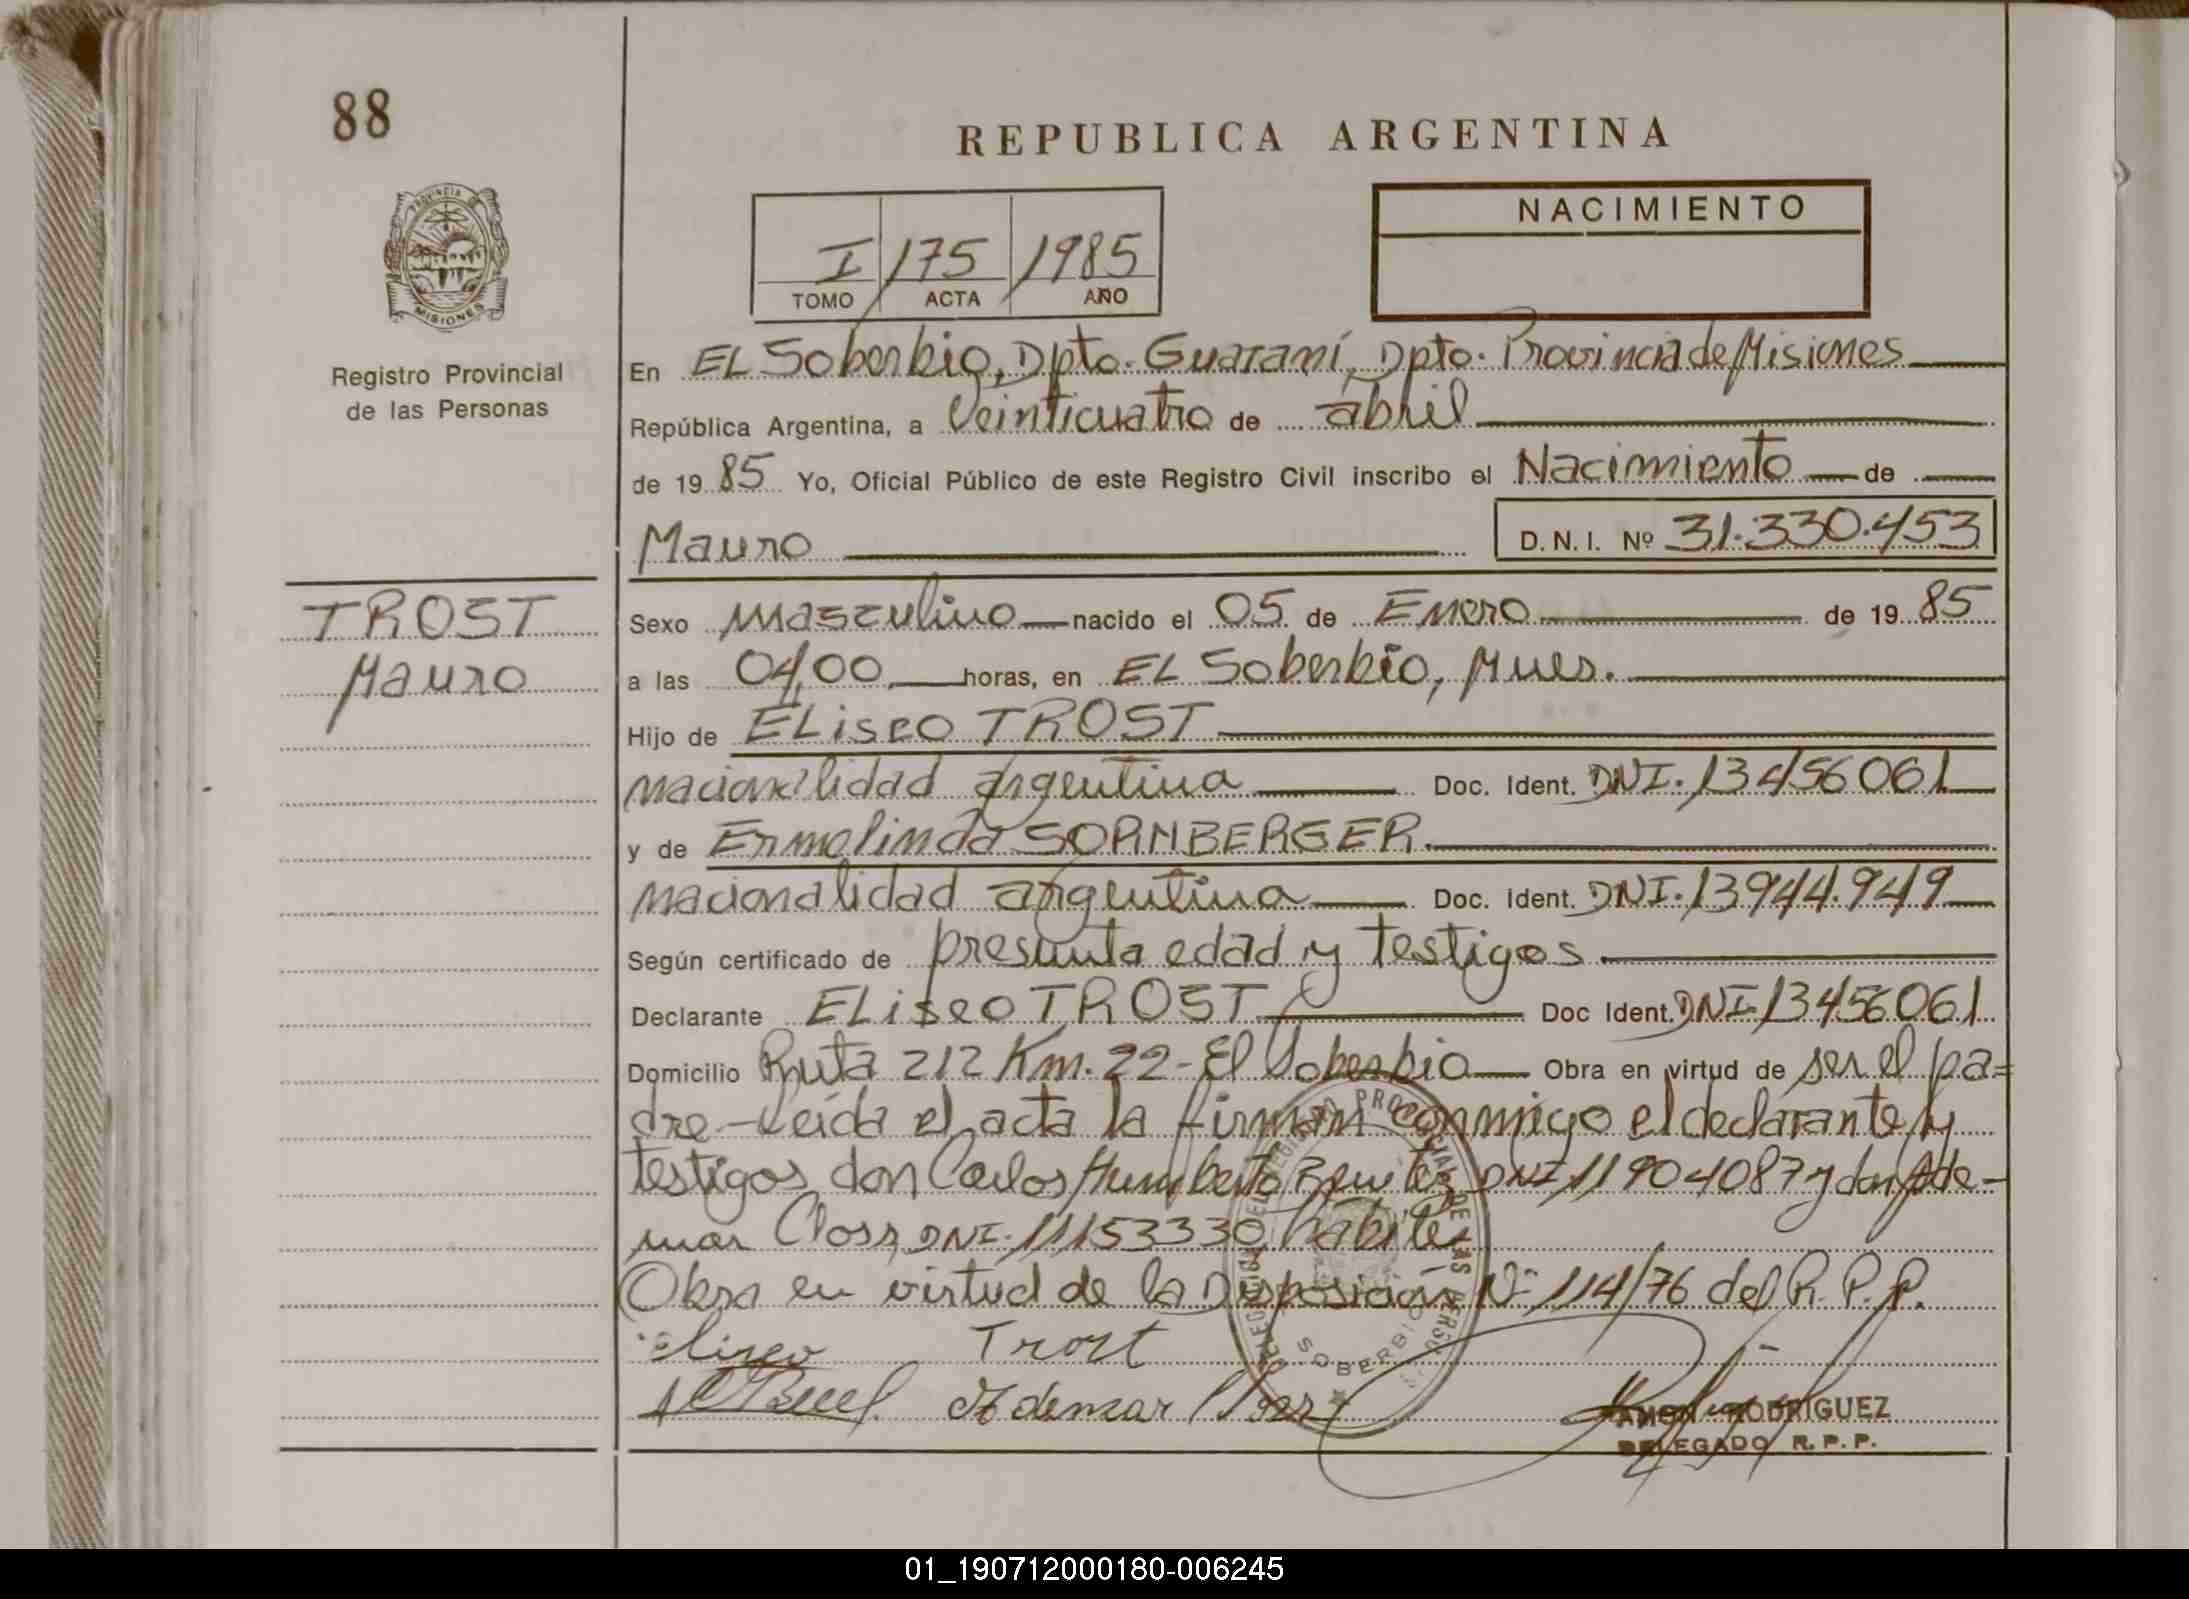 88
REPUBLICA ARGENTINA
PROVINCIA DE
MISIONES
Registro Provincial
de las Personas
I / 175 / 1985
TOMO ACTA AÑO
NACIMIENTO
En EL Soberbio, Dpto. Guaraní, Dpto. Provincia de Misiones
República Argentina, a Veinticuatro de abril
de 1985 Yo, Oficial Público de este Registro Civil inscribo el Nacimiento de
Mauro D.N.I. Nº 31.330.453
TROST
Mauro
Sexo masculino nacido el 05 de Enero de 1985
a las 04,00 horas, en EL Soberbio, Mnes.
Hijo de ELiseo TROST
nacionalidad argentina Doc. Ident. DNI. 13456061
y de Ermelinda SORNBERGER.
nacionalidad argentina Doc. Ident. DNI. 13944.949
Según certificado de presunta edad y testigos
Declarante ELiseo TROST Doc Ident. DNI 13456061
Domicilio Ruta 212 Km. 22 - El Soberbio Obra en virtud de ser el pa=
dre - Leída el acta la firman conmigo el declarante y
testigos don Carlos Humberto Benitez DNI 11904087 y don Ade-
mar Closs DNI. 11153330, habiles
Obra en virtud de la Disposición Nº 114/76 del R. P. P.
Eliseo Trost
Ademar Closs
SOBERBIO
RAMON RODRIGUEZ
DELEGADO R. P. P.
01_190712000180-006245